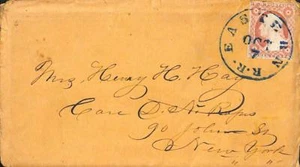 EASTERN R.R.
OCT
Mrs Henry H. Hay
Care D. A.
90 John St
New York